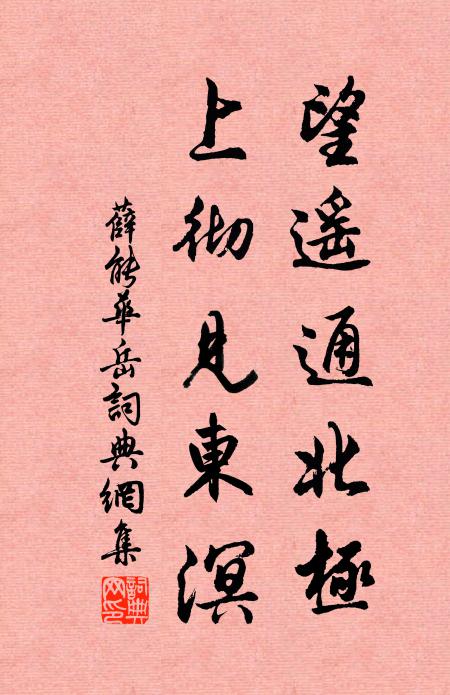 望遥通北極
上彻見東溟
薛能華岳詞典網集
詞典网